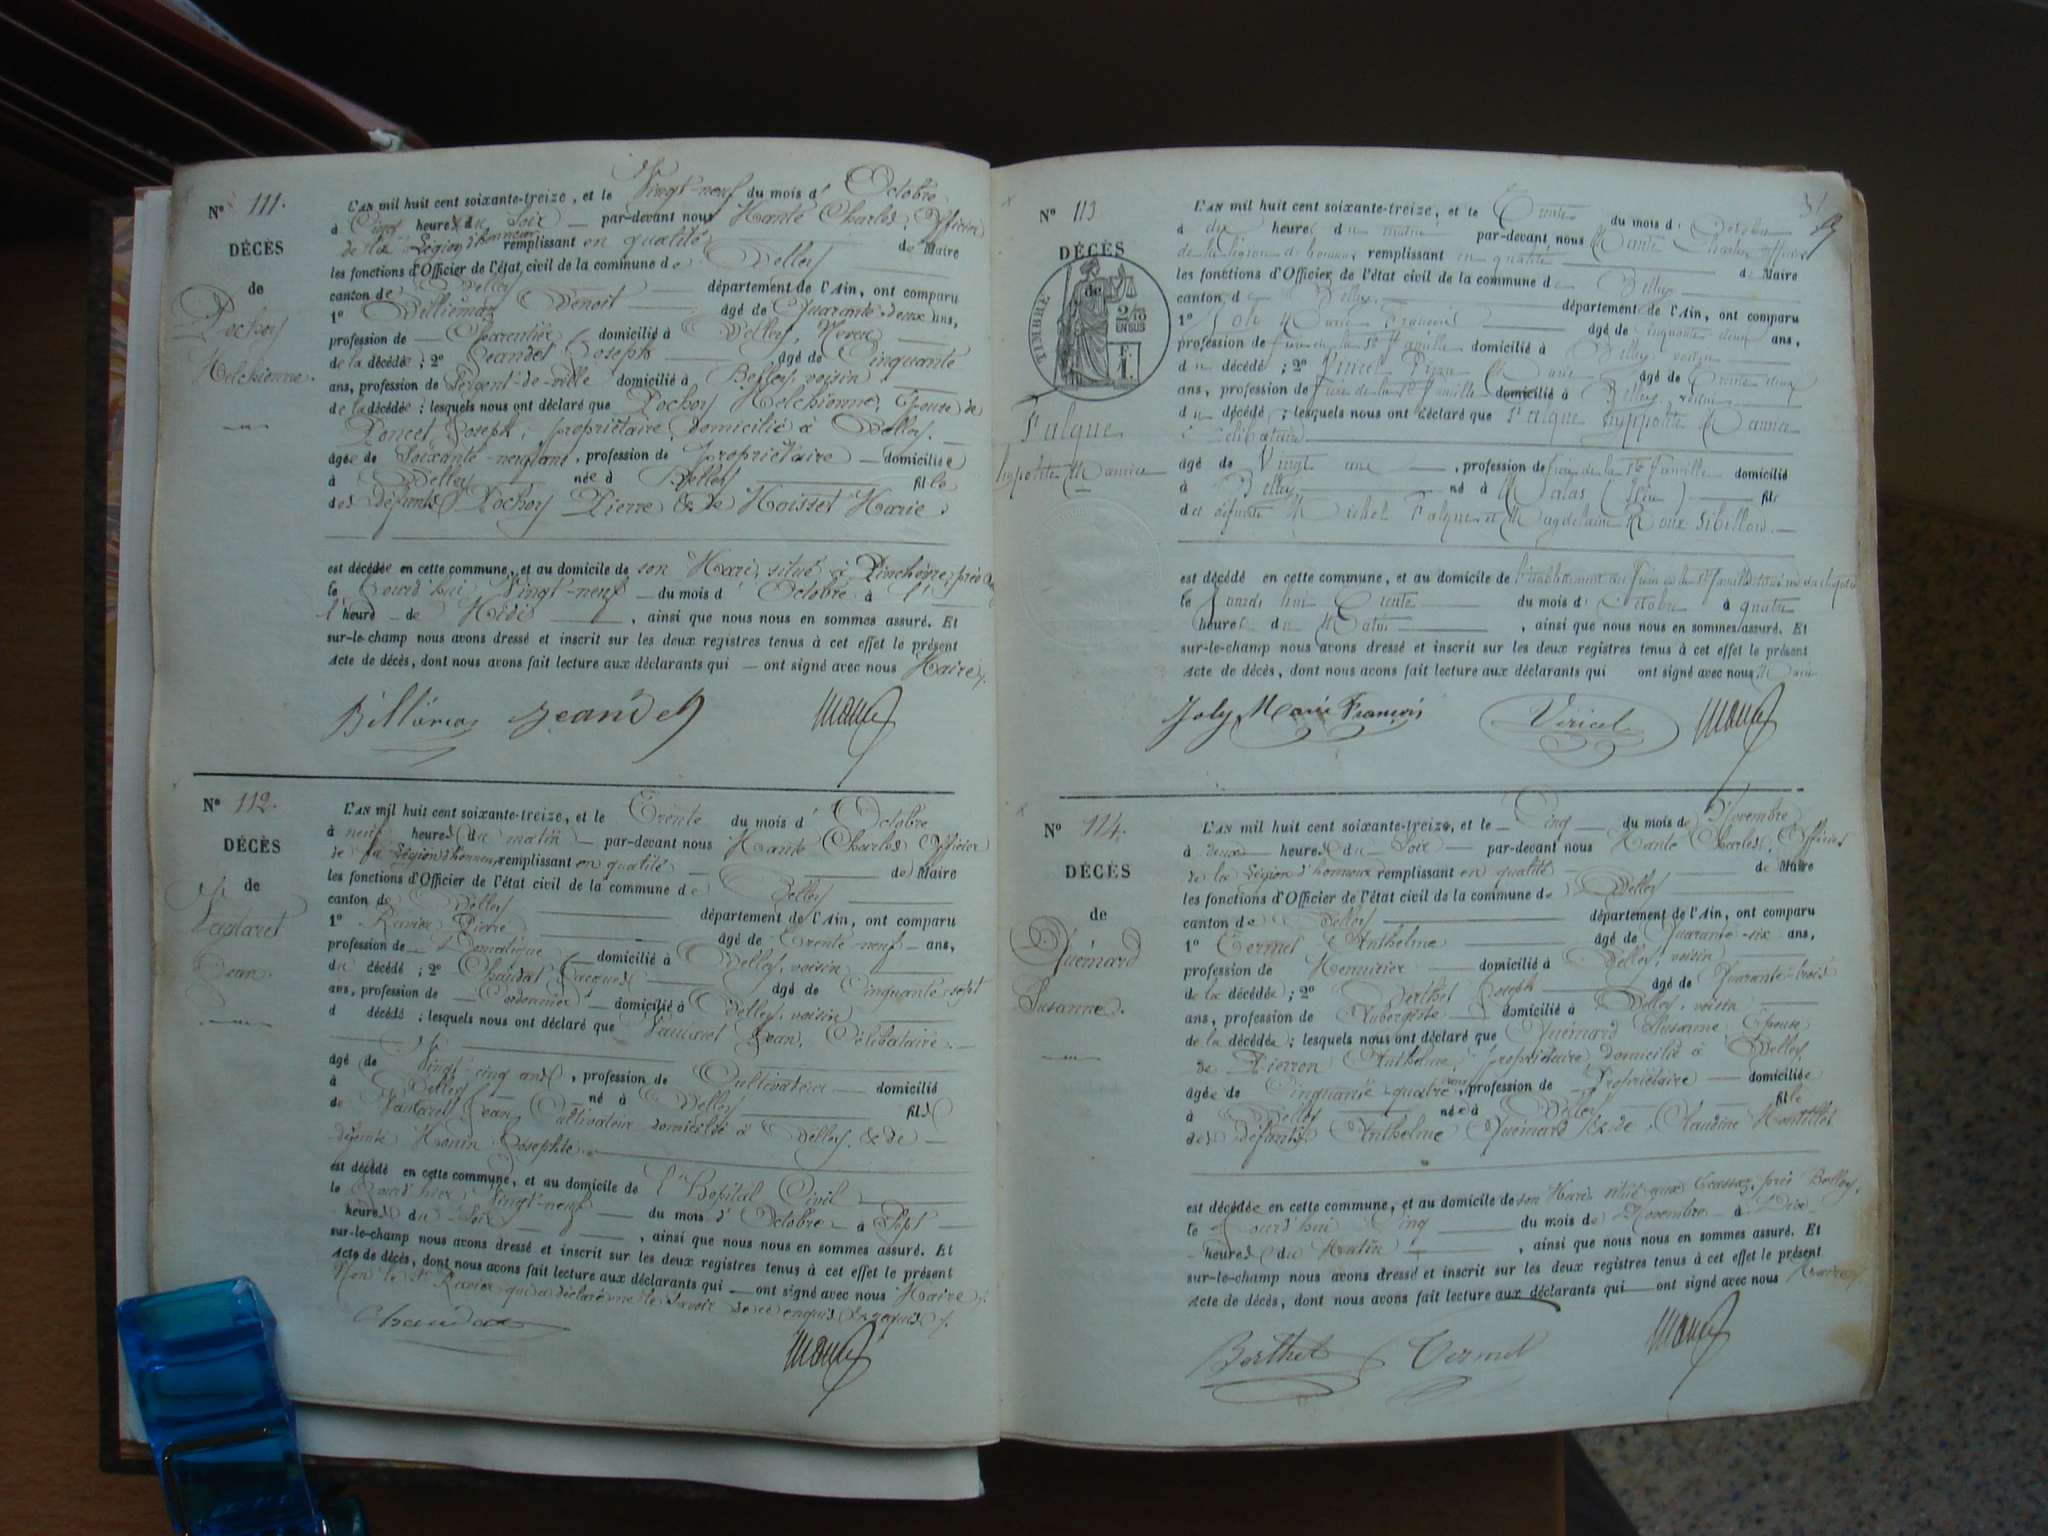 N° 111.
DÉCÈS
de
Pochoy
Melchionne.
L'AN mil huit cent soixante-treize, et le Vingt-neuf du mois d' Octobre
à Cinq heures du Soir par-devant nous Charles, Officier
de la Légion d'honneur remplissant en qualité de Maire
les fonctions d'Officier de l'état civil de la commune de Belley
canton de Belley département de l'Ain, ont comparu
1° Billiémaz Benoit âgé de Quarante-deux ans,
profession de Charpentier domicilié à Belley, Neveu
de la décédée ; 2° Jeandet Joseph âgé de Cinquante
ans, profession de Sergent-de-ville domicilié à Belley, voisin
de la décédée ; lesquels nous ont déclaré que Pochoy Melchionne, Epouse de
Poncet Joseph, propriétaire, domicilié à Belley.
âgée de Soixante-neuf ans, profession de Propriétaire domiciliée
à Belley née à Belley fille
des défunts Pochoy Pierre & de Moisset Marie.
est décédée en cette commune, et au domicile de son Mari, situé à près
le Jourd'hui Vingt-neuf du mois d' Octobre à
l'heure de Midi , ainsi que nous nous en sommes assuré. Et
sur-le-champ nous avons dressé et inscrit sur les deux registres tenus à cet effet le présent
Acte de décès, dont nous avons fait lecture aux déclarants qui ont signé avec nous Maire.
Billiémaz Jeandet
N° 112.
DÉCÈS
de
Vautaret
Jean.
L'AN mil huit cent soixante-treize, et le Trente du mois d' Octobre
à neuf heures du matin par-devant nous Charles Officier
de la Légion d'honneur remplissant en qualité de Maire
les fonctions d'Officier de l'état civil de la commune de Belley
canton de Belley département de l'Ain, ont comparu
1° Ravier Pierre âgé de Trente-neuf ans,
profession de Domestique domicilié à Belley, voisin
du décédé ; 2° Chaudat Jacques âgé de Cinquante-sept
ans, profession de Cordonnier domicilié à Belley, voisin
d décédé ; lesquels nous ont déclaré que Vautaret Jean, Célibataire.
âgé de Vingt-cinq ans, profession de Cultivateur domicilié
à Belley né à Belley fils
de Vautaret Jean, Cultivateur domicilié à Belley, & de
défunte Josephte.
est décédé en cette commune, et au domicile de l'Hopital Civil
le Jourd'hier Vingt-neuf du mois d' Octobre à Sept
heures du Soir , ainsi que nous nous en sommes assuré. Et
sur-le-champ nous avons dressé et inscrit sur les deux registres tenus à cet effet le présent
Acte de décès, dont nous avons fait lecture aux déclarants qui ont signé avec nous Maire.
Non le Sr Ravier qui a déclaré ne le savoir de ce enquis & requis.
Chaudat
N° 113
DÉCÈS
de
TIMBRE
2/10
EN SUS
F.
1.
Falque
hyppolite
L'AN mil huit cent soixante-treize, et le Trente du mois d' Octobre
à dix heures du matin par-devant nous Charles officier
de la légion de honneur remplissant en qualité de Maire
les fonctions d'Officier de l'état civil de la commune de Belley
canton de Belley. département de l'Ain, ont comparu
1° Joly Marie François âgé de Cinquante deux ans,
profession de frère de la Ste famille domicilié à Belley voisin
du décédé ; 2° Viricel Marie âgé de trente deux
ans, profession de frère de la Ste famille domicilié à Belley, voisin
du décédé ; lesquels nous ont déclaré que Falque hyppolite
Célibataire
âgé de Vingt ans , profession frère de la Ste famille domicilié
à Belley né à fils
des défunts Michel Falque et Magdelaine
est décédé en cette commune, et au domicile de l'établissement des frères de la Ste famille
le Jourd'hui Trente du mois d' Octobre à quatre
heures du Matin , ainsi que nous nous en sommes assuré. Et
sur-le-champ nous avons dressé et inscrit sur les deux registres tenus à cet effet le présent
Acte de décès, dont nous avons fait lecture aux déclarants qui ont signé avec nous Maire
Joly Marie François Viricel
N° 114.
DÉCÈS
de
Quémard
Susanne.
L'AN mil huit cent soixante-treize, et le Cinq du mois de Novembre
à deux heures du Soir par-devant nous Charles, Officier
de la Légion d'honneur remplissant en qualité de Maire
les fonctions d'Officier de l'état civil de la commune de Belley
canton de Belley département de l'Ain, ont comparu
1° Anthelme âgé de Quarante-six ans,
profession de Menuisier domicilié à Belley, voisin
de la décédée ; 2° Berthet Joseph âgé de Quarante-trois
ans, profession de Aubergiste domicilié à Belley, voisin
de la décédée ; lesquels nous ont déclaré que Quémard Susanne, Epouse
de Pierron Anthelme, propriétaire, domicilié à Belley,
âgée de Cinquante-quatre ans, profession de Propriétaire domiciliée
à Belley née à Belley fille
des défunts Anthelme Quémard & de Claudine Montillet
est décédée en cette commune, et au domicile de son Mari, situé aux près Belley,
le Jourd'hui Cinq du mois de Novembre à Dix
heures du Matin , ainsi que nous nous en sommes assuré. Et
sur-le-champ nous avons dressé et inscrit sur les deux registres tenus à cet effet le présent
Acte de décès, dont nous avons fait lecture aux déclarants qui ont signé avec nous Maire
Berthet